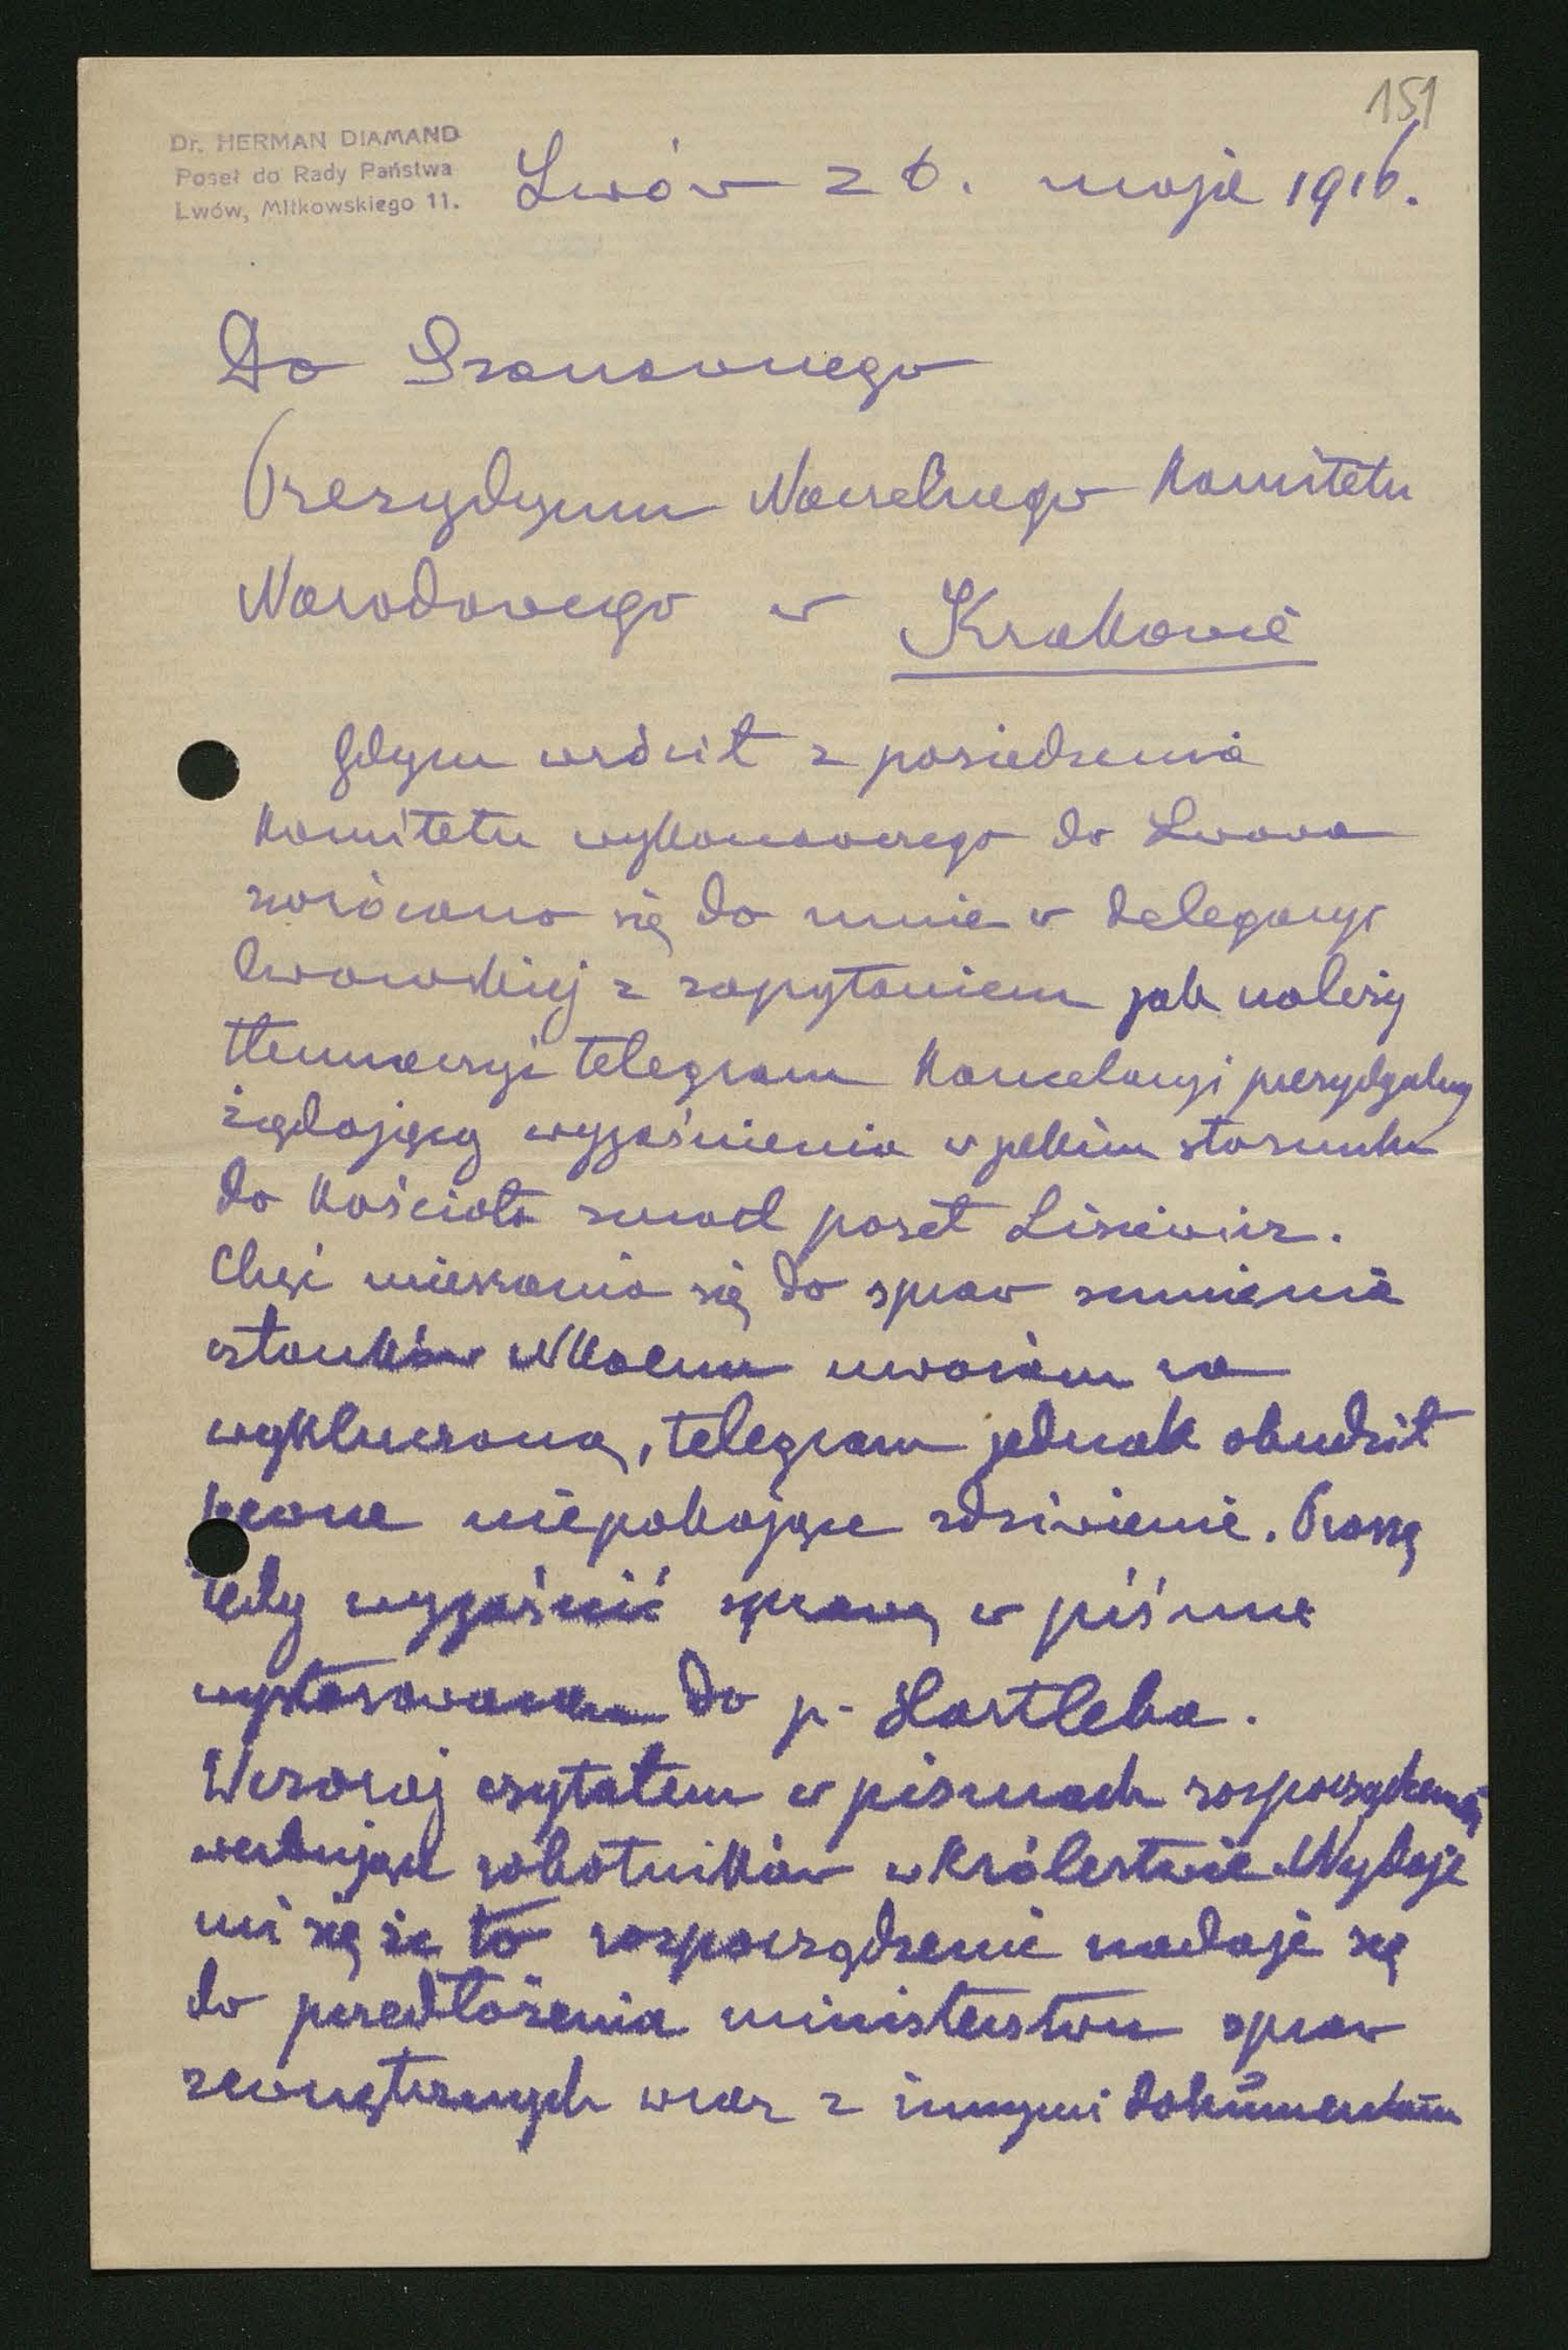 151
Dr. HERMAN DIAMAND
Poseł do Rady Państwa
Lwów, Miłkowskiego 11.
Lwów 26. maja 1916.
Do Szanownego
Prezydyum Naczelnego Komitetu
Narodowego w Krakowie
Gdym wrócił z posiedzenia
Komitetu wykonawczego do Lwowa
zwrócono się do mnie w delegacyi
lwowskiej z zapytaniem jak należy
tłumaczyć telegram Kancelaryi prezydyalnej
żądającej wyjaśnienia w jakim stosunku
do Kościoła zmarł poseł Lisiewicz.
Chęć mieszania się do spraw sumienia
członków NKNu uważam za
wykluczoną, telegram jednak obudził
pewne niepokojące zdziwienie. Proszę
tedy wyjaśnić sprawę w piśmie
wystosowanem do p. Hartleba.
Wczoraj czytałem w pismach rozporządzenie
werbujące robotników w Królestwie. Wydaje
mi się że to rozporządzenie nadaje się
do przedłożenia ministerstwu spraw
zewnętrznych wraz z innymi dokumentami